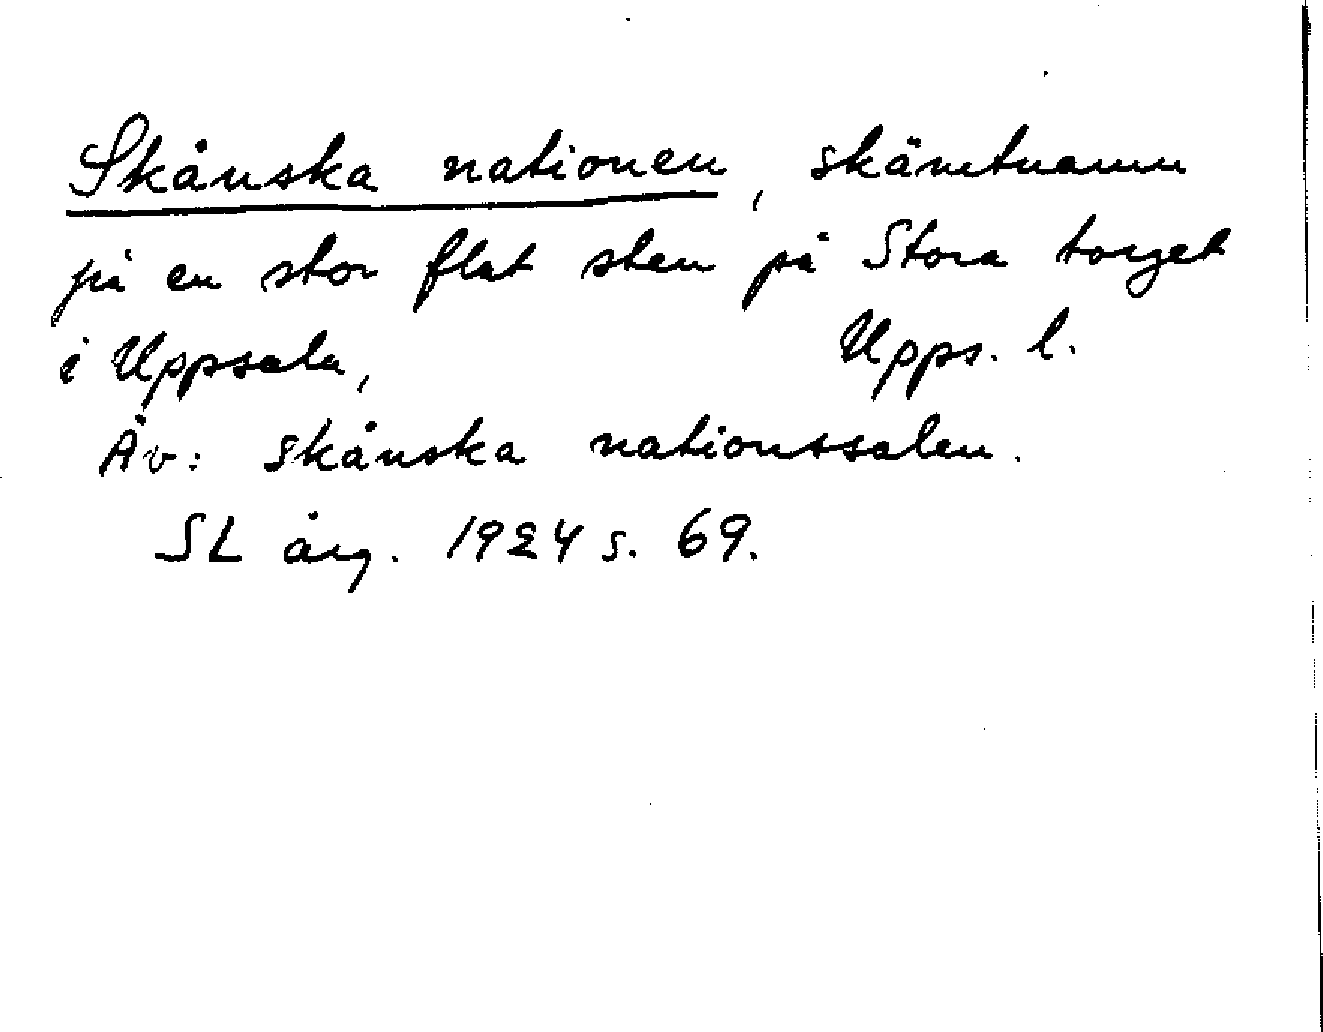 Skånska nationen, skämtnamn
på en stor flat sten på Stora torget
i Uppsala, Upps. l.
Äv: skånska nationssalen.
SL årg. 1924 s. 69.